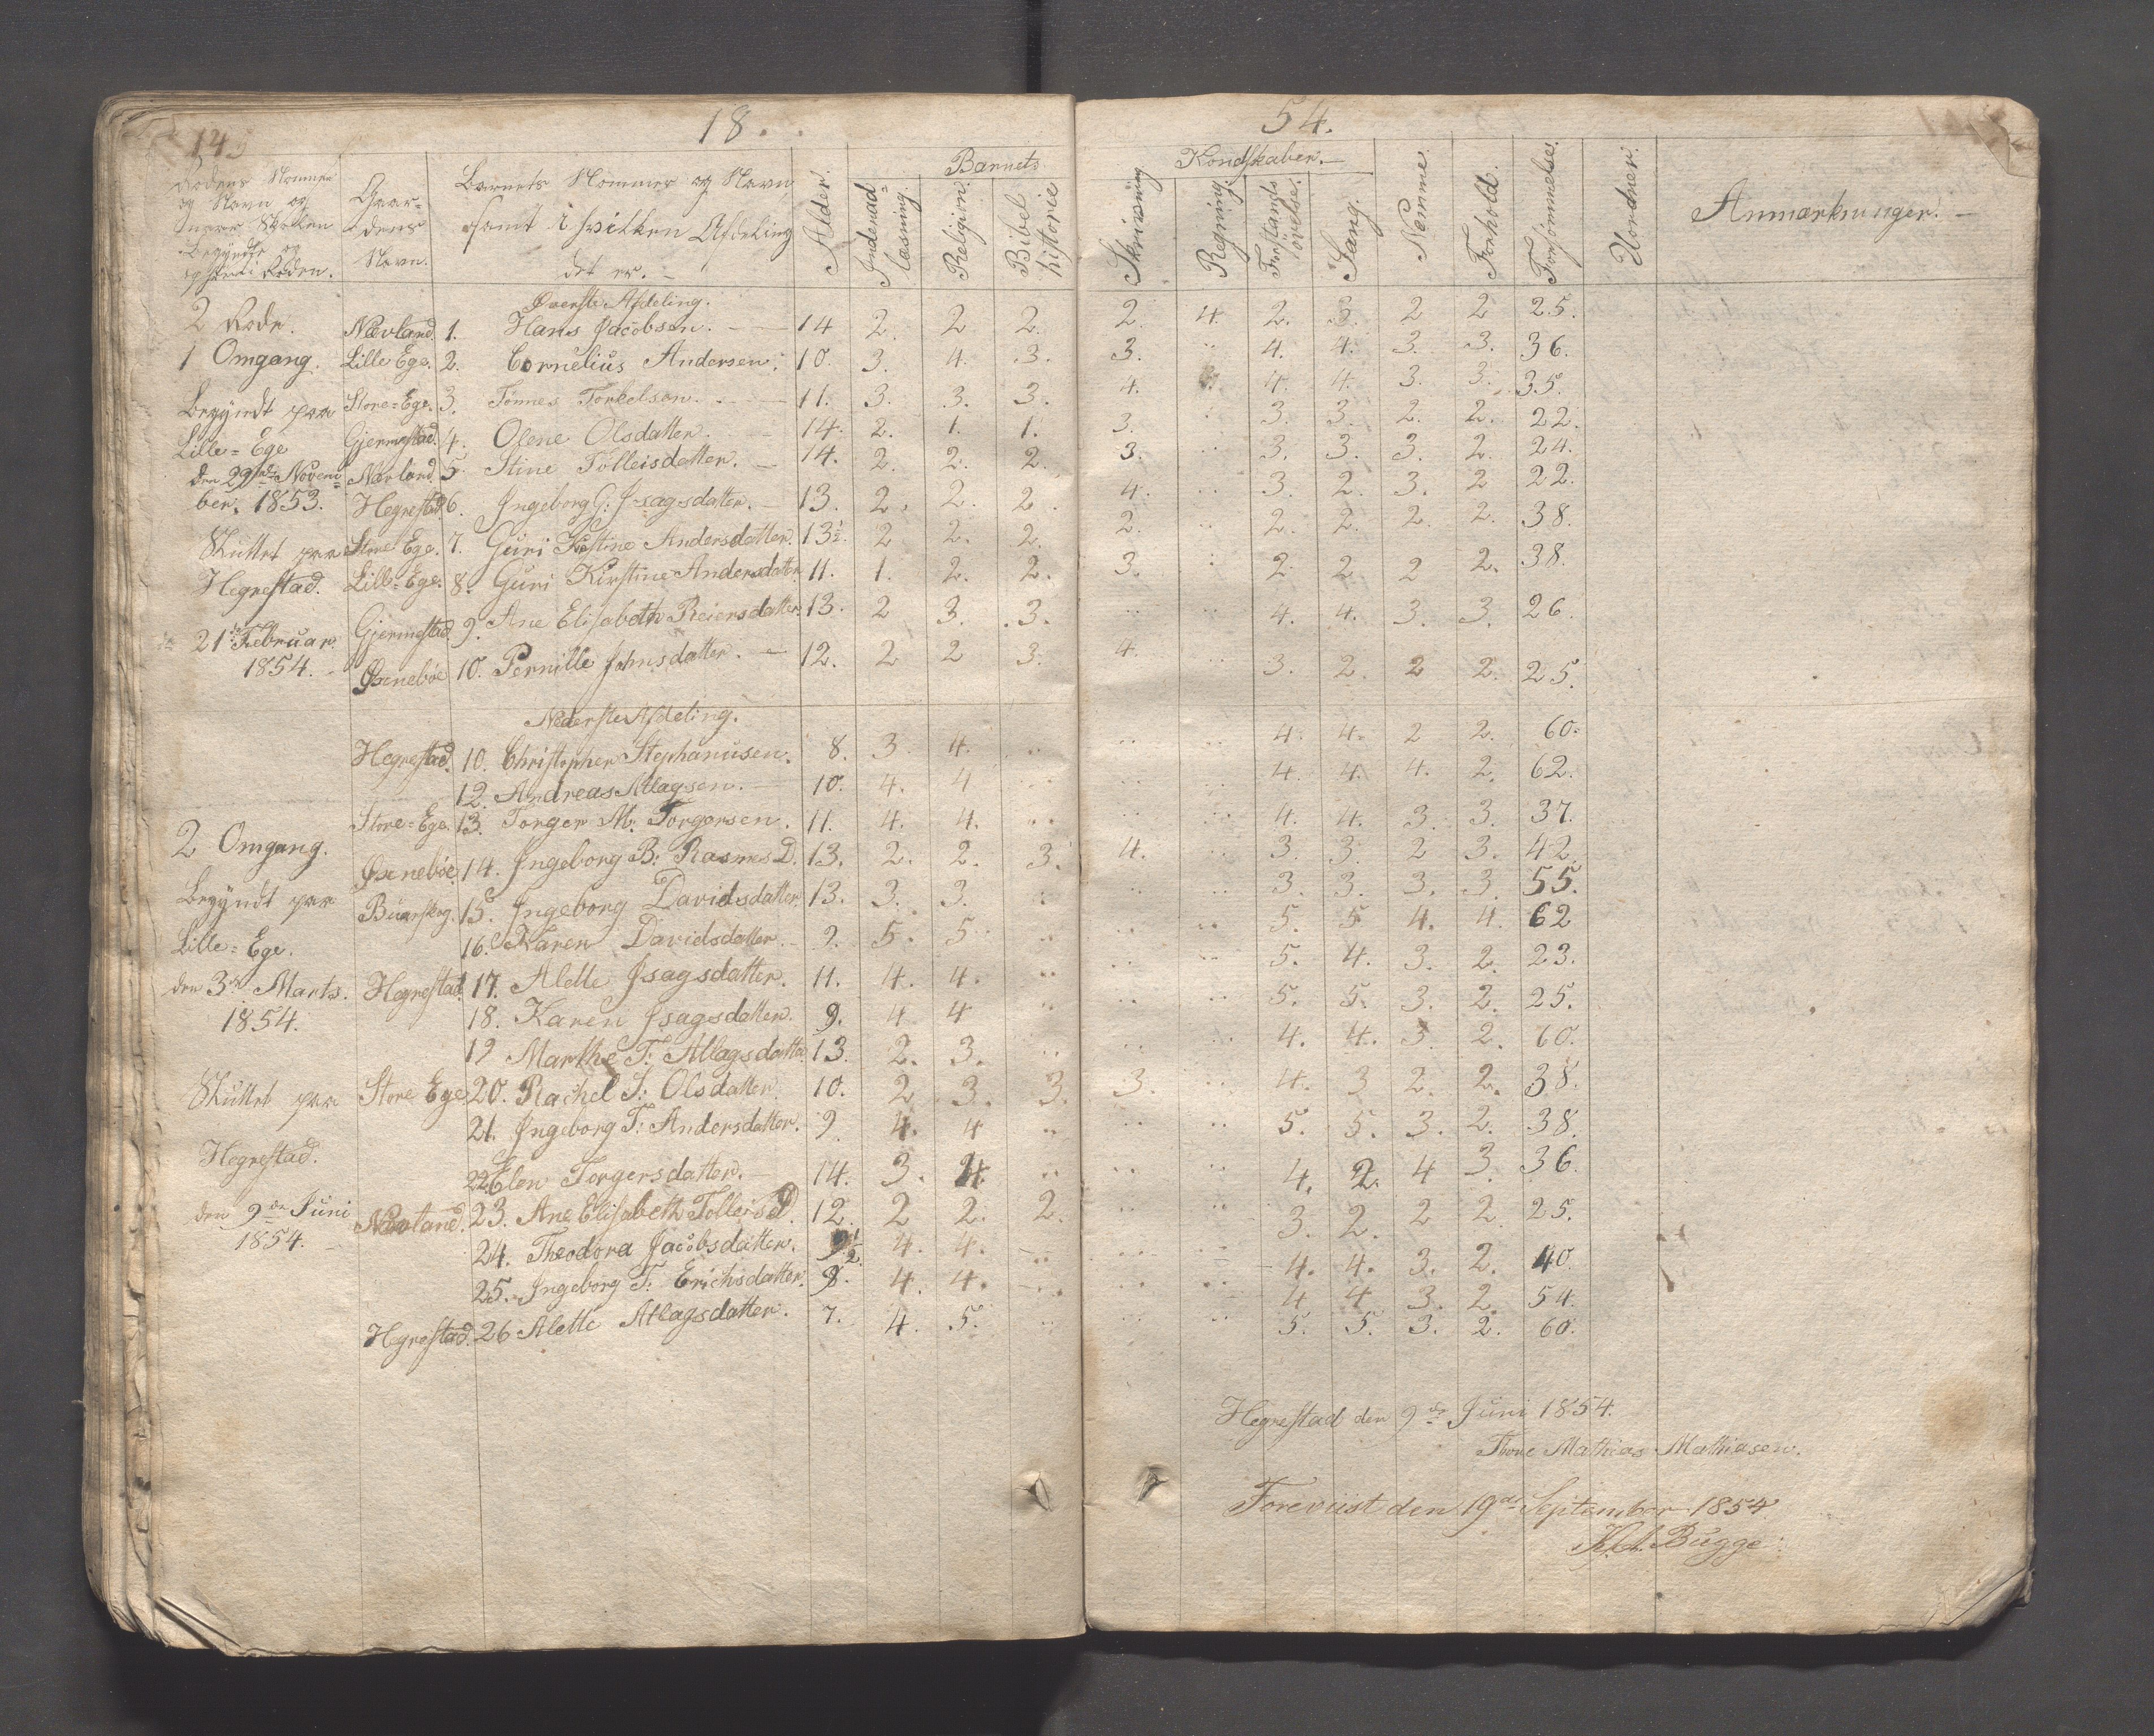 14
18.
54.
Rodens Nommer og Navn og naar Skolen Begyndte og i Roden.
Gaardens Navn.
Barnets Nommer og Navn samt i hvilken Afdeling det er. -
Alder.
Barnets Kundskaber. -
Indenadlæsning.
Religion.
Bibelhistorie
Skrivning
Regning.
Forstandsövelse.
Sang.
Nemme.
Forhold.
Forsømmelse.
Uordner.
Anmærkninger. -
Øverste Afdeling.
2 Rode. Nævland. 1. Hans Jacobsen. - 14 2. 2 2. 2. 4. 2. 3. 2 2 25.
1 Omgang. Lille Ege. 2. Cornelius Andersen. 10. 3. 4. 3. 3. .. 4. 4. 3. 3. 36.
Begyndt paa Store=Ege. 3. Tönnes Torkelsen. - 11. 3. 3. 3. 4. 4. 4. 3. 3. 35.
Lille=Ege Gjermestad. 4. Olene Olsdatter. 14. 2. 1. 1. 3. .. 3. 3. 2. 2. 22.
den 29de Novem= Nævland. 5. Stine Tolleisdatter. - 14. 2. 2. 2. 3. .. 3. 3. 3. 2. 24.
ber. 1853. Hegrestad. 6. Ingeborg G: Isagsdatter. - 13. 2. 2. 2. 4. .. 3. 2. 3. 2 22.
Sluttet paa Store Ege. 7. Guri Kistine Andersdatter. 13½. 2 2. 2. 2. .. 2. 2. 2. 2. 38.
Hegrestad. Lille=Ege. 8. Guri Kirstine Andersdatter 11. 1. 2. 2. 3. .. 2. 2 2 2. 38.
21de Februar Gjermestad. 9. Ane Elisabeth Reiersdatter. 13. 2 3. 3. .. .. 4. 4. 3. 3. 26.
1854. - Øxnebøe 10. Pernille Johnsdatter. - 12. 2 2 3. 4. .. 3. 2. 2 2. 25.
Nederste Afdeling.
Hegrestad. 10. Christopher Stephanusen. 8. 3. 4. .. .. .. 4. 4. 2 2. 60.
12. Andreas Atlagsen. - 10. 4. 4 .. .. .. 4. 4. 4. 2. 62.
Store=Ege. 13. Torger M: Torgersen. 11. 4. 4. .. .. .. 4. 4. 3. 3. 37.
2 Omgang. Øxnebøe. 14. Ingeborg B: Rasmes D. 13. 2. 2. 3. 4. 3. 3. 2 3. 42.
Begyndt paa Buarskog. 15. Ingeborg Davidsdatter. 13. 3. 3. .. .. .. 3. 3. 3. 3. 55.
Lille=Ege. 16. Karen Davidsdatter. - 9. 5. 5 .. .. .. 5. 5 4. 4. 62
den 3de Marts. Hegrestad. 17. Alette Isagsdatter. 11. 4. 4. .. .. .. 5. 4. 3. 2. 23.
1854. 18. Karen Isagsdatter. 9. 4 4 .. .. .. 5. 5. 3. 2. 25.
19 Marthe T: Atlagsdatter 13. 2. 3. .. .. .. 4. 4. 3. 2. 60.
Sluttet paa Store Ege 20. Rachel S: Olsdatter. 10. 2 3. 3. 3. .. 4. 3 2. 2. 38.
21. Ingeborg T: Andersdatter. 9. 4. 4 .. .. .. 5. 5. 3. 2. 38.
Hegrestad. 22 Elen Torgersdatter. - 14. 3. 4. .. .. .. 4. 2. 4 3. 36.
den 9de Juni Nævland. 23. Ane Elisabeth Tolleis D. 12. 2 2. 2. .. .. 3. 2. 2 2. 25.
1854. - 24. Theodora Jacobsdatter. 9½ 4. 4. .. .. .. 4. 4. 3. 2. 40.
25. Ingeborg T: Erichsdatter. 8. 4. 4. .. .. .. 4 4 3. 2. 54.
Hegrestad. 26 Alette Atlagsdatter. 7. 4. 5. .. .. .. 5. 5. 3. 2. 60.
Hegrestad den 9de Juni 1854.
Thore Mathias Mathiasen.
Foreviist den 19de September 1854
K.A. Bugge.